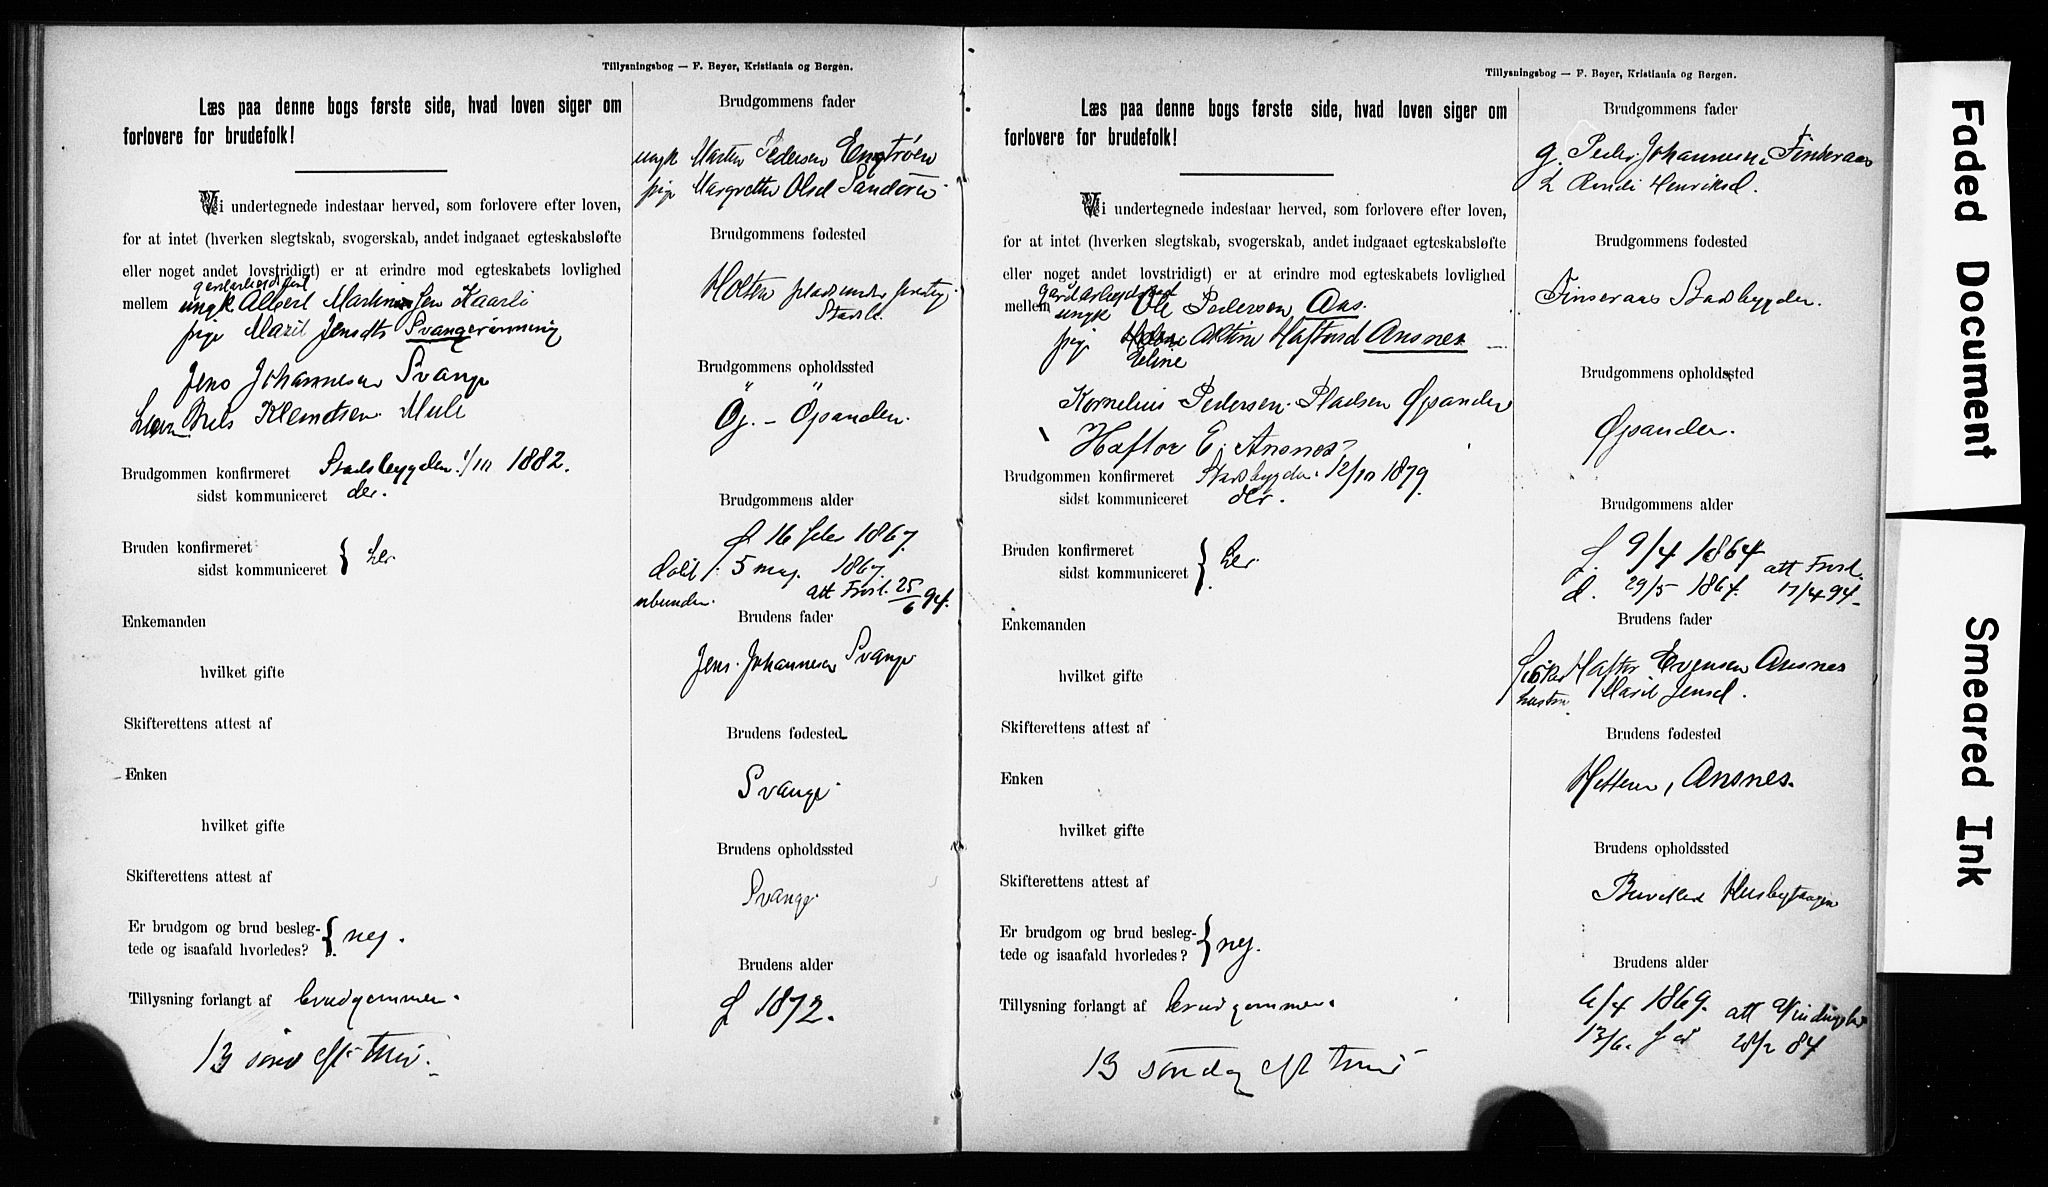 Tillysningsbog — F. Beyer, Kristiania og Bergen.
Læs paa denne bogs første side, hvad loven siger om
forlovere for brudefolk!
Vi undertegnede indestaar herved, som forlovere efter loven,
for at intet (hverken slegtskab, svogerskab, andet indgaaet egteskabsløfte
eller noget andet lovstridigt) er at erindre mod egteskabets lovlighed
mellem ungk Albert Kaarli
pige Marit Jensdtr Svangrønning
Jens Johannesen Svange
Nils Klemetsen Mule
Brudgommen konfirmeret Stadsbygden 1/10 1882.
sidst kommuniceret der.
Bruden konfirmeret
sidst kommuniceret } her
Enkemanden
hvilket gifte
Skifterettens attest af
Enken
hvilket gifte
Skifterettens attest af
Er brudgom og brud besleg-
tede og isaafald hvorledes? } nej.
Tillysning forlangt af brudgommen.
13 sønd eft trin.
Brudgommens fader
ungk Marten Pedersen Engtrøen
pige Margrethe Olsd Sandøren
Brudgommens fødested
Holten
Brudgommens opholdssted
Øj. - Øjsanden.
Brudgommens alder
f 16 febr 1867.
døbt 5 maj 1867.
att Frost. 25/6 94.
Brudens fader
Jens Johannesen Svange
Brudens fødested
Svange
Brudens opholdssted
Svange
Brudens alder
f 1872.
Tillysningsbog — F. Beyer, Kristiania og Bergen.
Læs paa denne bogs første side, hvad loven siger om
forlovere for brudefolk!
Vi undertegnede indestaar herved, som forlovere efter loven,
for at intet (hverken slegtskab, svogerskab, andet indgaaet egteskabsløfte
eller noget andet lovstridigt) er at erindre mod egteskabets lovlighed
mellem ungk Ole Pedersen Aas.
pige Haftorsd Ansnes
Eline
Kornelius Pedersen Pladsen Øjsanden
Haftor E. Ansnes
Brudgommen konfirmeret Stadsbygden 12/10 1879.
sidst kommuniceret der.
Bruden konfirmeret
sidst kommuniceret } her
Enkemanden
hvilket gifte
Skifterettens attest af
Enken
hvilket gifte
Skifterettens attest af
Er brudgom og brud besleg-
tede og isaafald hvorledes? } nej.
Tillysning forlangt af brudgommen.
13 søndag eft trin
Brudgommens fader
g. Peder Johannesen Finseraas
h Randi Henriksd.
Brudgommens fødested
Finseraas Stadsbygden.
Brudgommens opholdssted
Øjsanden.
Brudgommens alder
f. 9/4 1864 att Frost.
d. 29/5 1864. 17/4 94
Brudens fader
Haftor Evensen Ansnes
hustru Marit Jensd.
Brudens fødested
Hitteren, Ansnes.
Brudens opholdssted
Buviken
Brudens alder
6/4 1869. att
13/6.
Faded Document
Smeared Ink